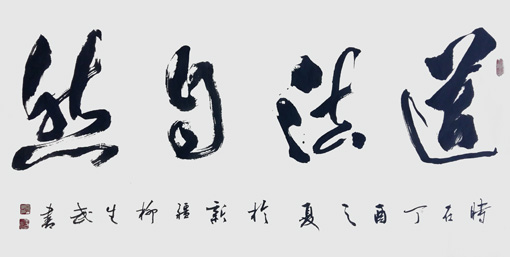 道法自然
時在丁酉之夏於新疆柳生武書